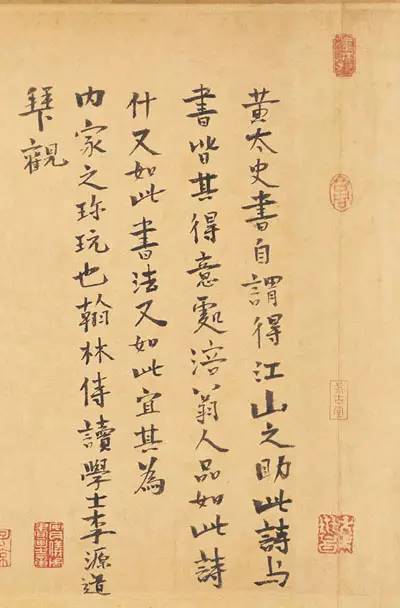 黄太史書自謂得江山之助此詩与
書皆其得意處涪翁人品如此詩
什又如此書法又如此宜其為
内家之珎玩也翰林侍讀學士李源道
拜觀